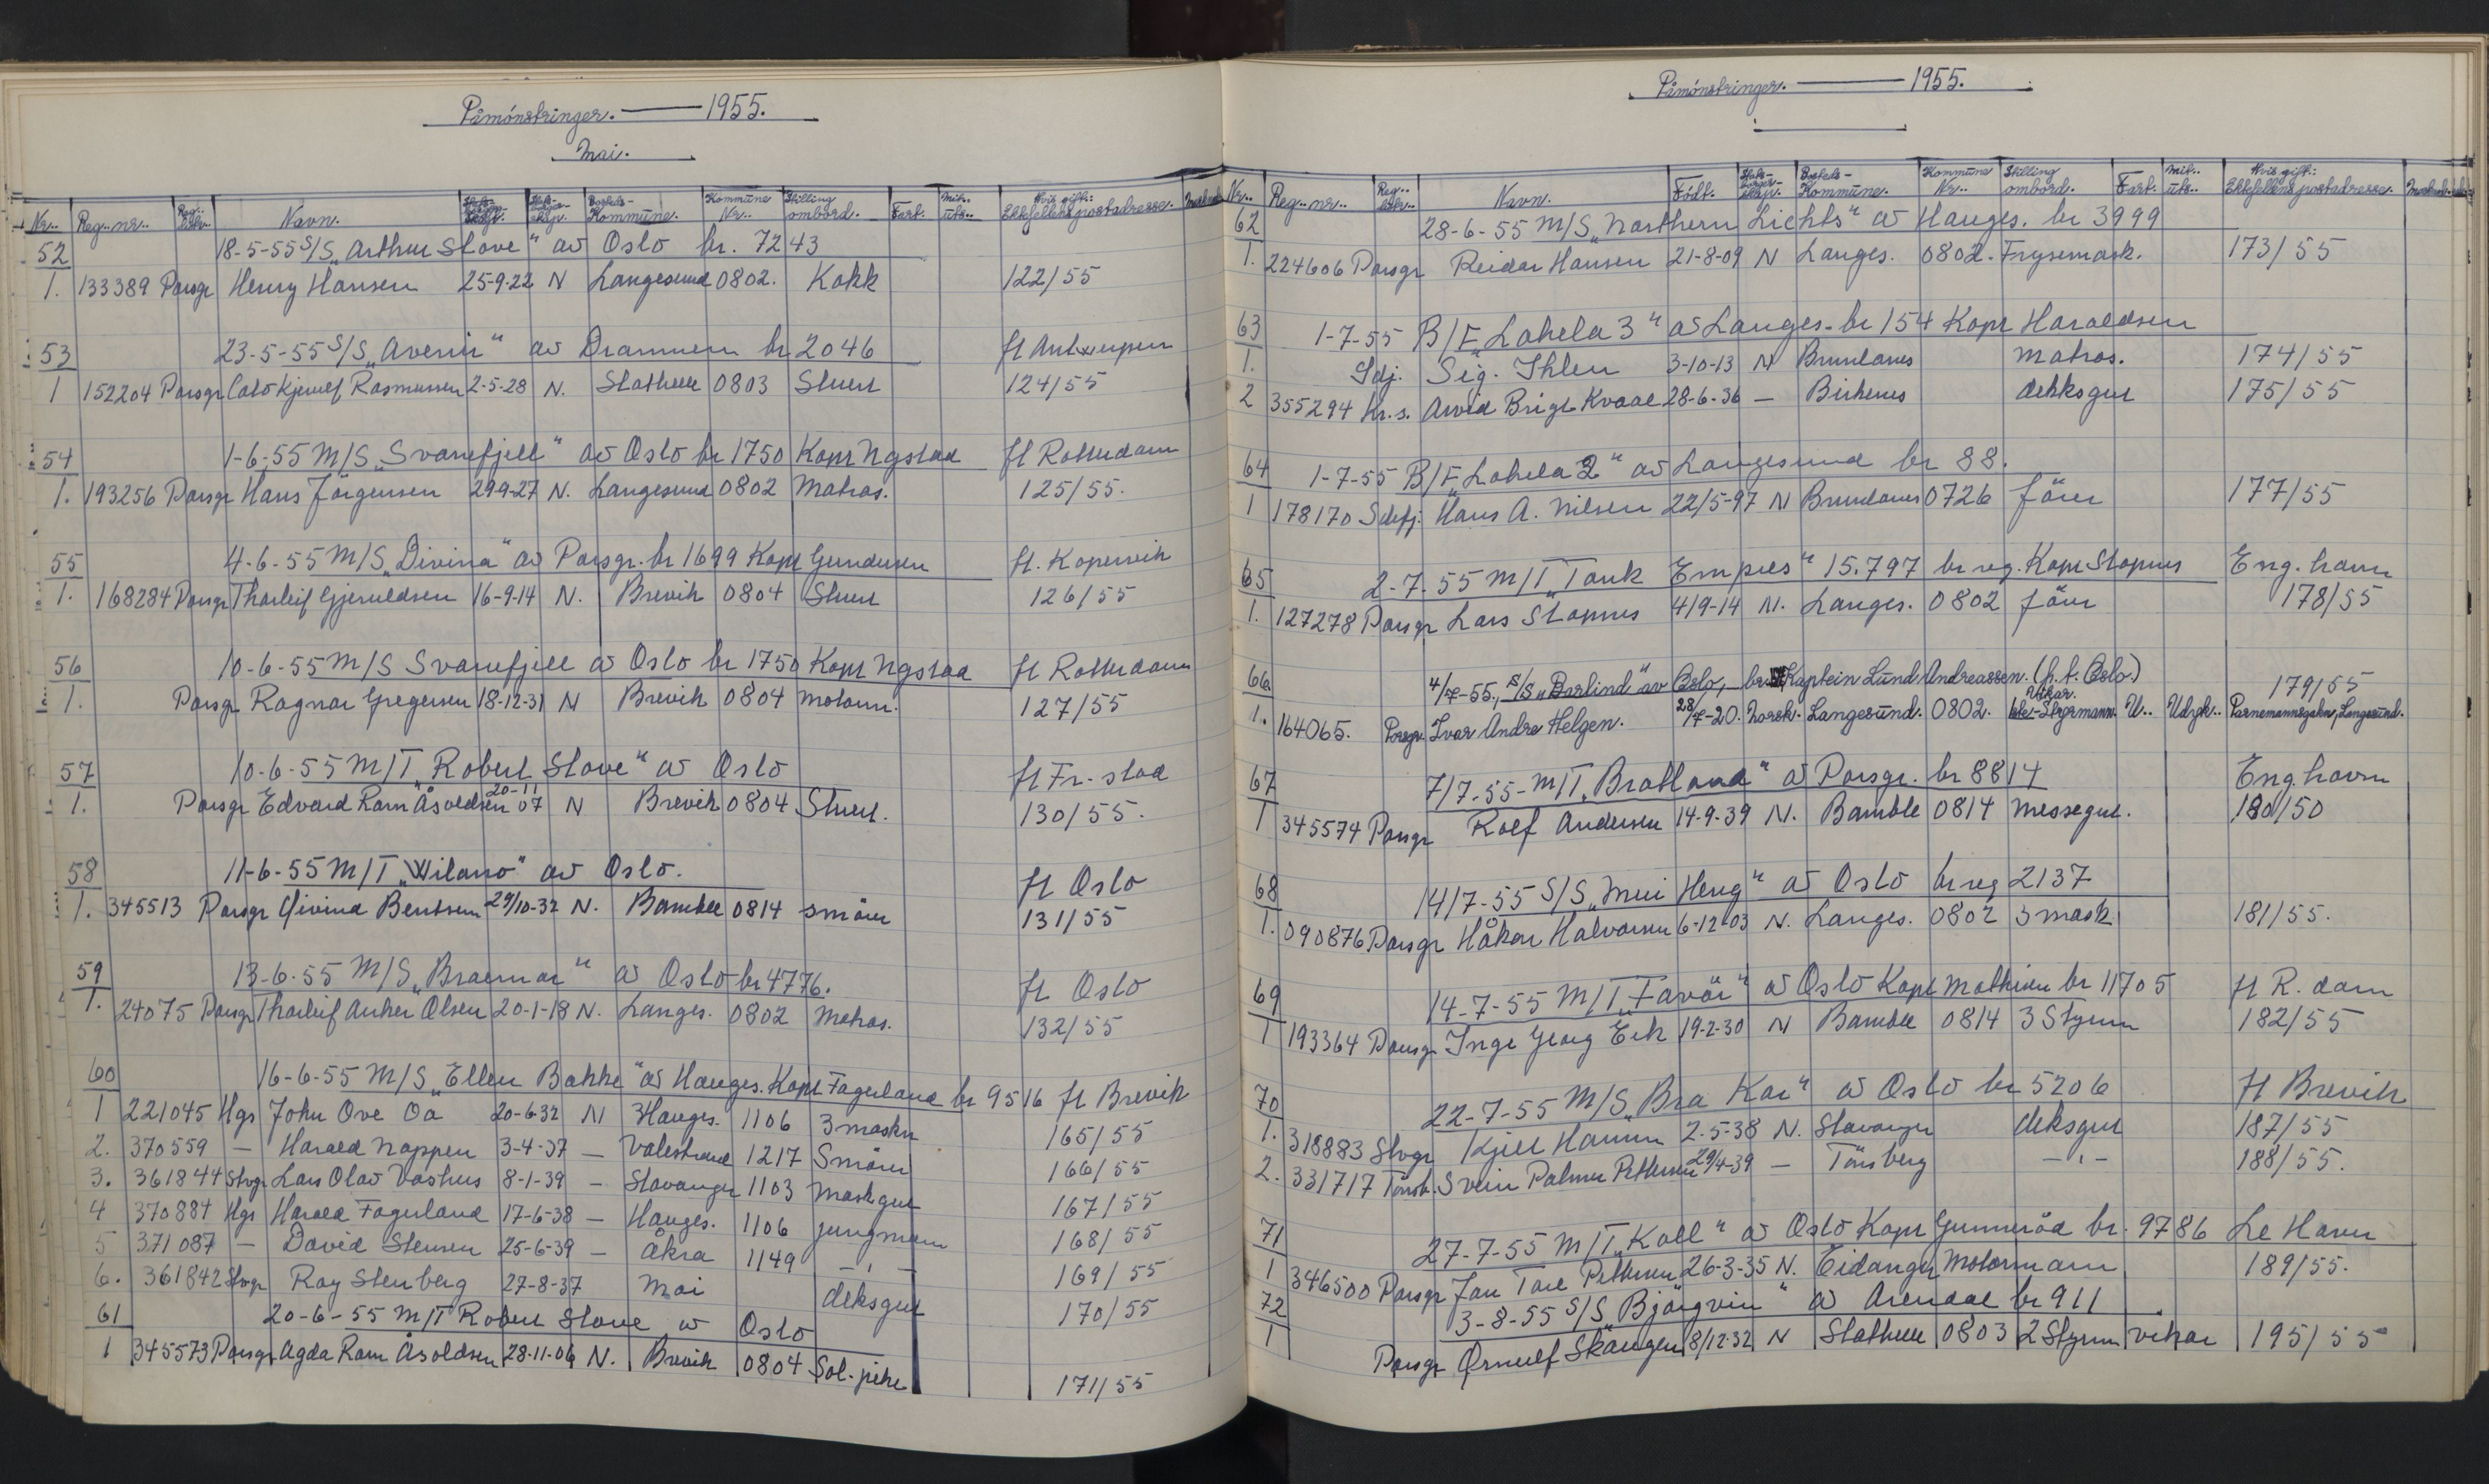 Påmönstringer. — 1955.
Mai.
Nr.. Reg.-nr.. Navn. Bosteds-Kommune. Kommune Nr.. Stilling ombord. Fart. Mil.. uts.. Hvis gift: Ektefellens postadresse.
52 18-5-55 S/S „Arthur Stove" av Oslo br. 7243
1. 133389 Porsgr Henry Hansen 25-9-22 N Langesund 0802. Kokk 122/55
53 23-5-55 S/S „Avenir" av Drammen br 2046 ft Antwerpen
1 152204 Porsgr Cato Kjerulf Rasmussen 2-5-28 N. Stathelle 0803 Stuert 124/55
54 1-6-55 M/S „Svanefjell" av Oslo br 1750 Kapt Ngstad ft Rotterdam
1. 193256 Porsgr Hans Jörgensen 29-9-27 N. Langesund 0802 Matros. 125/55.
55 4-6-55 M/S „Divina" av Porsgr. br 1699 Kapt Gundersen ft. Kopervik
1. 168284 Porsgr Thorleif Gjeruldsen 16-9-14 N. Brevik 0804 Stuert 126/55
56 10-6-55 M/S Svanefjell av Oslo br 1750 Kapt Ngstad ft Rotterdam
1. Porsgr Ragnar Gregersen 18-12-31 N Brevik 0804 motorm. 127/55
57 10-6-55 M/T „Robert Stove" av Oslo ft Fr.stad
1. Porsgr Edvard Ram Åsoldsen 20-11 07 N Brevik 0804 Stuert. 130/55.
58 11-6-55 M/T „Wilano" av Oslo. ft Oslo
1. 345513 Porsgr Eivind Bentsen 29/10-32 N. Bamble 0814 smörer 131/55
59 13-6-55 M/S „Braemar" av Oslo br 4776. ft Oslo
1. 24075 Porsgr Thorleif Anker Olsen 20-1-18 N. Langes. 0802 Matros. 132/55
60 16-6-55 M/S „Ellen Bakke" av Hauges. Kapt Fagerland br 9516 ft Brevik
1 221045 Hgs John Ove Oa 20-6-32 N Hauges. 1106 3 maskn 165/55
2. 370559 — Harald Nappen 3-4-37 — Valestrand 1217 Smörer 166/55
3. 361844 Stvgr Lars Olav Vashus 8-1-39 — Stavanger 1103 Maskgut 167/55
4 370884 Hgs Harald Fagerland 17-6-38 — Hauges. 1106 jungmann 168/55
5 371087 — David Stensen 25-6-39 — Åkra 1149 — " — 169/55
6. 361842 Stvgr Roy Stenberg 27-8-37 Moi deksgut 170/55
61 20-6-55 M/T Robert Stove av Oslo
1 345573 Porsgr Agda Ram Åsoldsen 28-11-06 N. Brevik 0804 Sal.-pike 171/55
Påmönstringer. — 1955.
Nr.. Reg.-nr.. Reg.. Navn. Född. Stats-borger-skap. Bosteds-Kommune. Kommune Nr.. Stilling ombord. Fart. Mil.. uts.. Hvis gift: Ektefellens postadresse.
62 28-6-55 M/S „Northern Lichts" av Hauges. br 3999
1. 224606 Porsgr Reidar Hansen 21-8-09 N Langes. 0802. Frysemask. 173/55
63 1-7-55 B/F „Lakela 3" av Langes. br 154 Kapt Haraldsen
1. Sdj. Sig. Ihlen 3-10-13 N Brunlanes matros. 174/55
2 355294 Kr.s. Arvid Brigt Kvaal 28-6-36 — Birkenes dekksgut 175/55
64 1-7-55 B/F „Lakela 2" av Langesund br 88.
1 178170 Sdefj. Hans A. Nilsen 22/5-97 N Brunlanes 0726 förer 177/55
65 2-7-55 M/T „Tank Empress" 15.797 br reg. Kapt Stapnes Eng. havn
1. 127278 Porsgr Lars Stapnes 4/9-14 N. Langes. 0802 förer 178/55
66. 4/7-55, S/S „Borlind" av Oslo, — br. Kaptein Lund Andreassen. (p.t. Oslo.) 179/55
1. 164065. Porsgr. Ivar Andre Helgen. 28/7-20. Norsk. Langesund. 0802. Vikar. Styrmann. U.. Udyk.. Langesund.
67 7/7-55- M/T „Bratland" av Porsgr. br 8814 Eng.havn
1 345574 Porsgr Rolf Andersen 14-9-39 N. Bamble 0814 messegut. 180/50
68 14/7-55 S/S „Mui Heng" av Oslo br reg 2137
1. 090876 Porsgr Håkon Halvorsen 6-12-03 N. Langes. 0802 3 mask 181/55.
69 14-7-55 M/T „Favör" av Oslo Kapt Mathisen br 11705 ft R.dam
1 193364 Porsgr Inge Georg Eek 19-2-30 N Bamble 0814 3 Styrm 182/55
70 22-7-55 M/S „Bra Kar" av Oslo br 5206 ft Brevik
1. 318883 Stvgr Kjell Hamm 2-5-38 N. Stavanger deksgut 187/55
2. 331717 Tönsb. Svein Palmer Pettersen 29/4-39 — Tönsberg — " — 188/55.
71 27-7-55 M/T „Koll" av Oslo Kapt Gunneröd br. 9786 Le Havre
1 346500 Porsgr Jan Tore Pettersen 26-3-35 N. Eidanger Motormann 189/55.
72 3-8-55 S/S „Björgvin" av Arendal br 911
1 Porsgr Ørnulf Skaugen 8/12-32 N Stathelle 0803 2 Styrm vikar 195/55